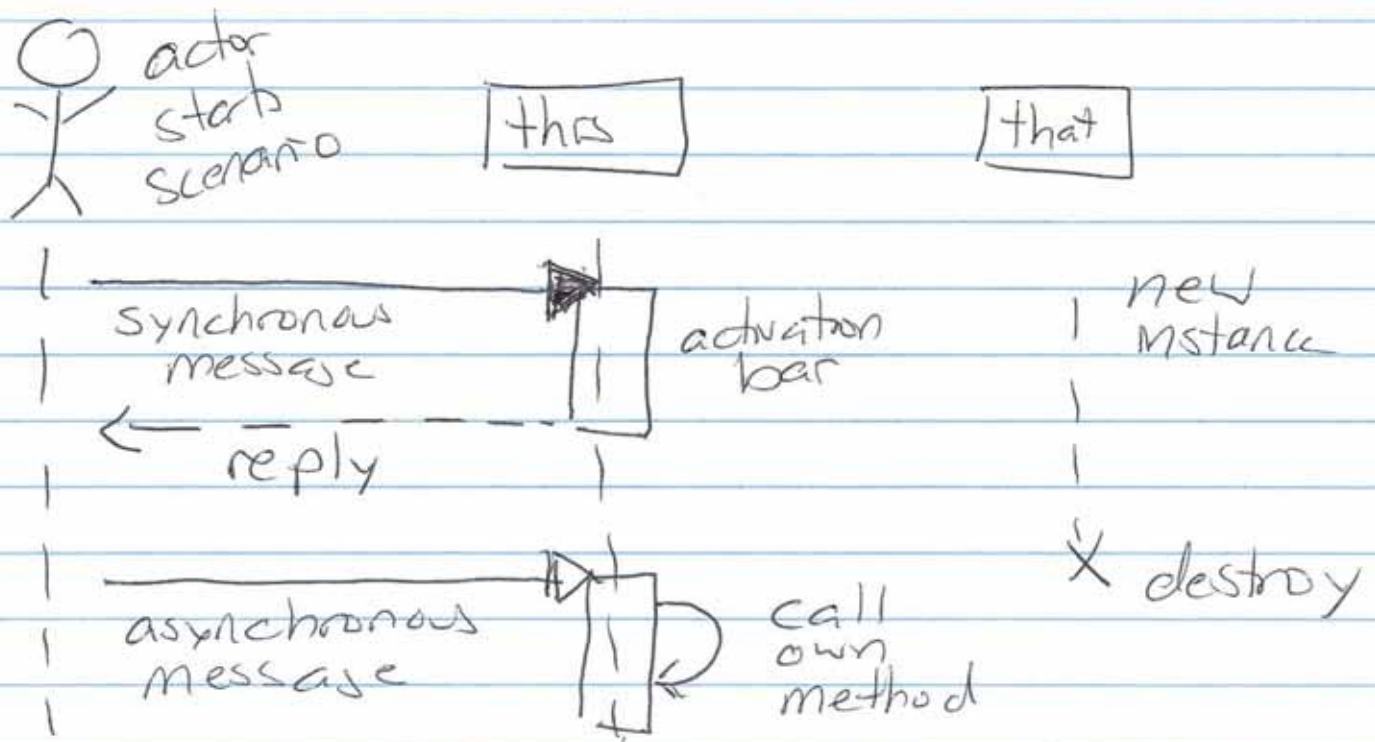 actor
starts
scenario
this
that
synchronous
message
activation
bar
new
instance
reply
asynchronous
message
call
own
method
destroy